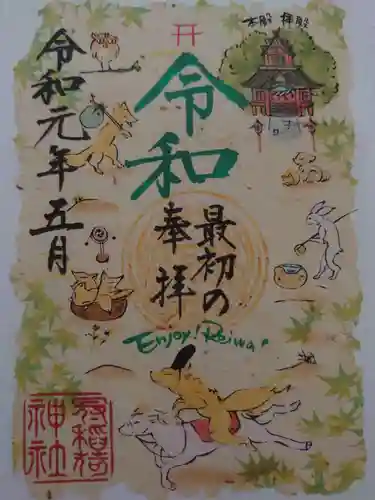 本殿 拝殿
令和
最初の
奉拝
令和元年五月
Enjoy! Reiwa
冠稲荷
神社